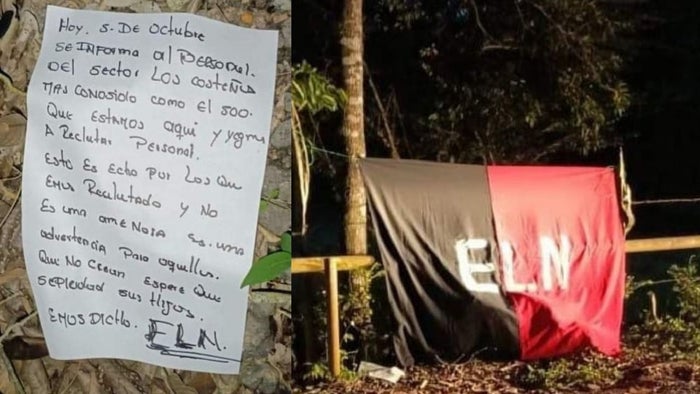 Hoy. 5. DE Octubre
SE INFORMA al PERSONAL.
DEL Sector LOS COSTEÑOS
MAS CONOSIDO COMO El 500.
Que ESTAMOS aqui y
A Reclutar Personal.
Esto Es Echo por Los Que
EMOS Reclutado y NO
Es una amenasa Es. una
advertencia Para aquellos.
Que No Crean Espere Que
SEPIERDAD sus Hijos.
EMOS Dicho. ELN.
ELN